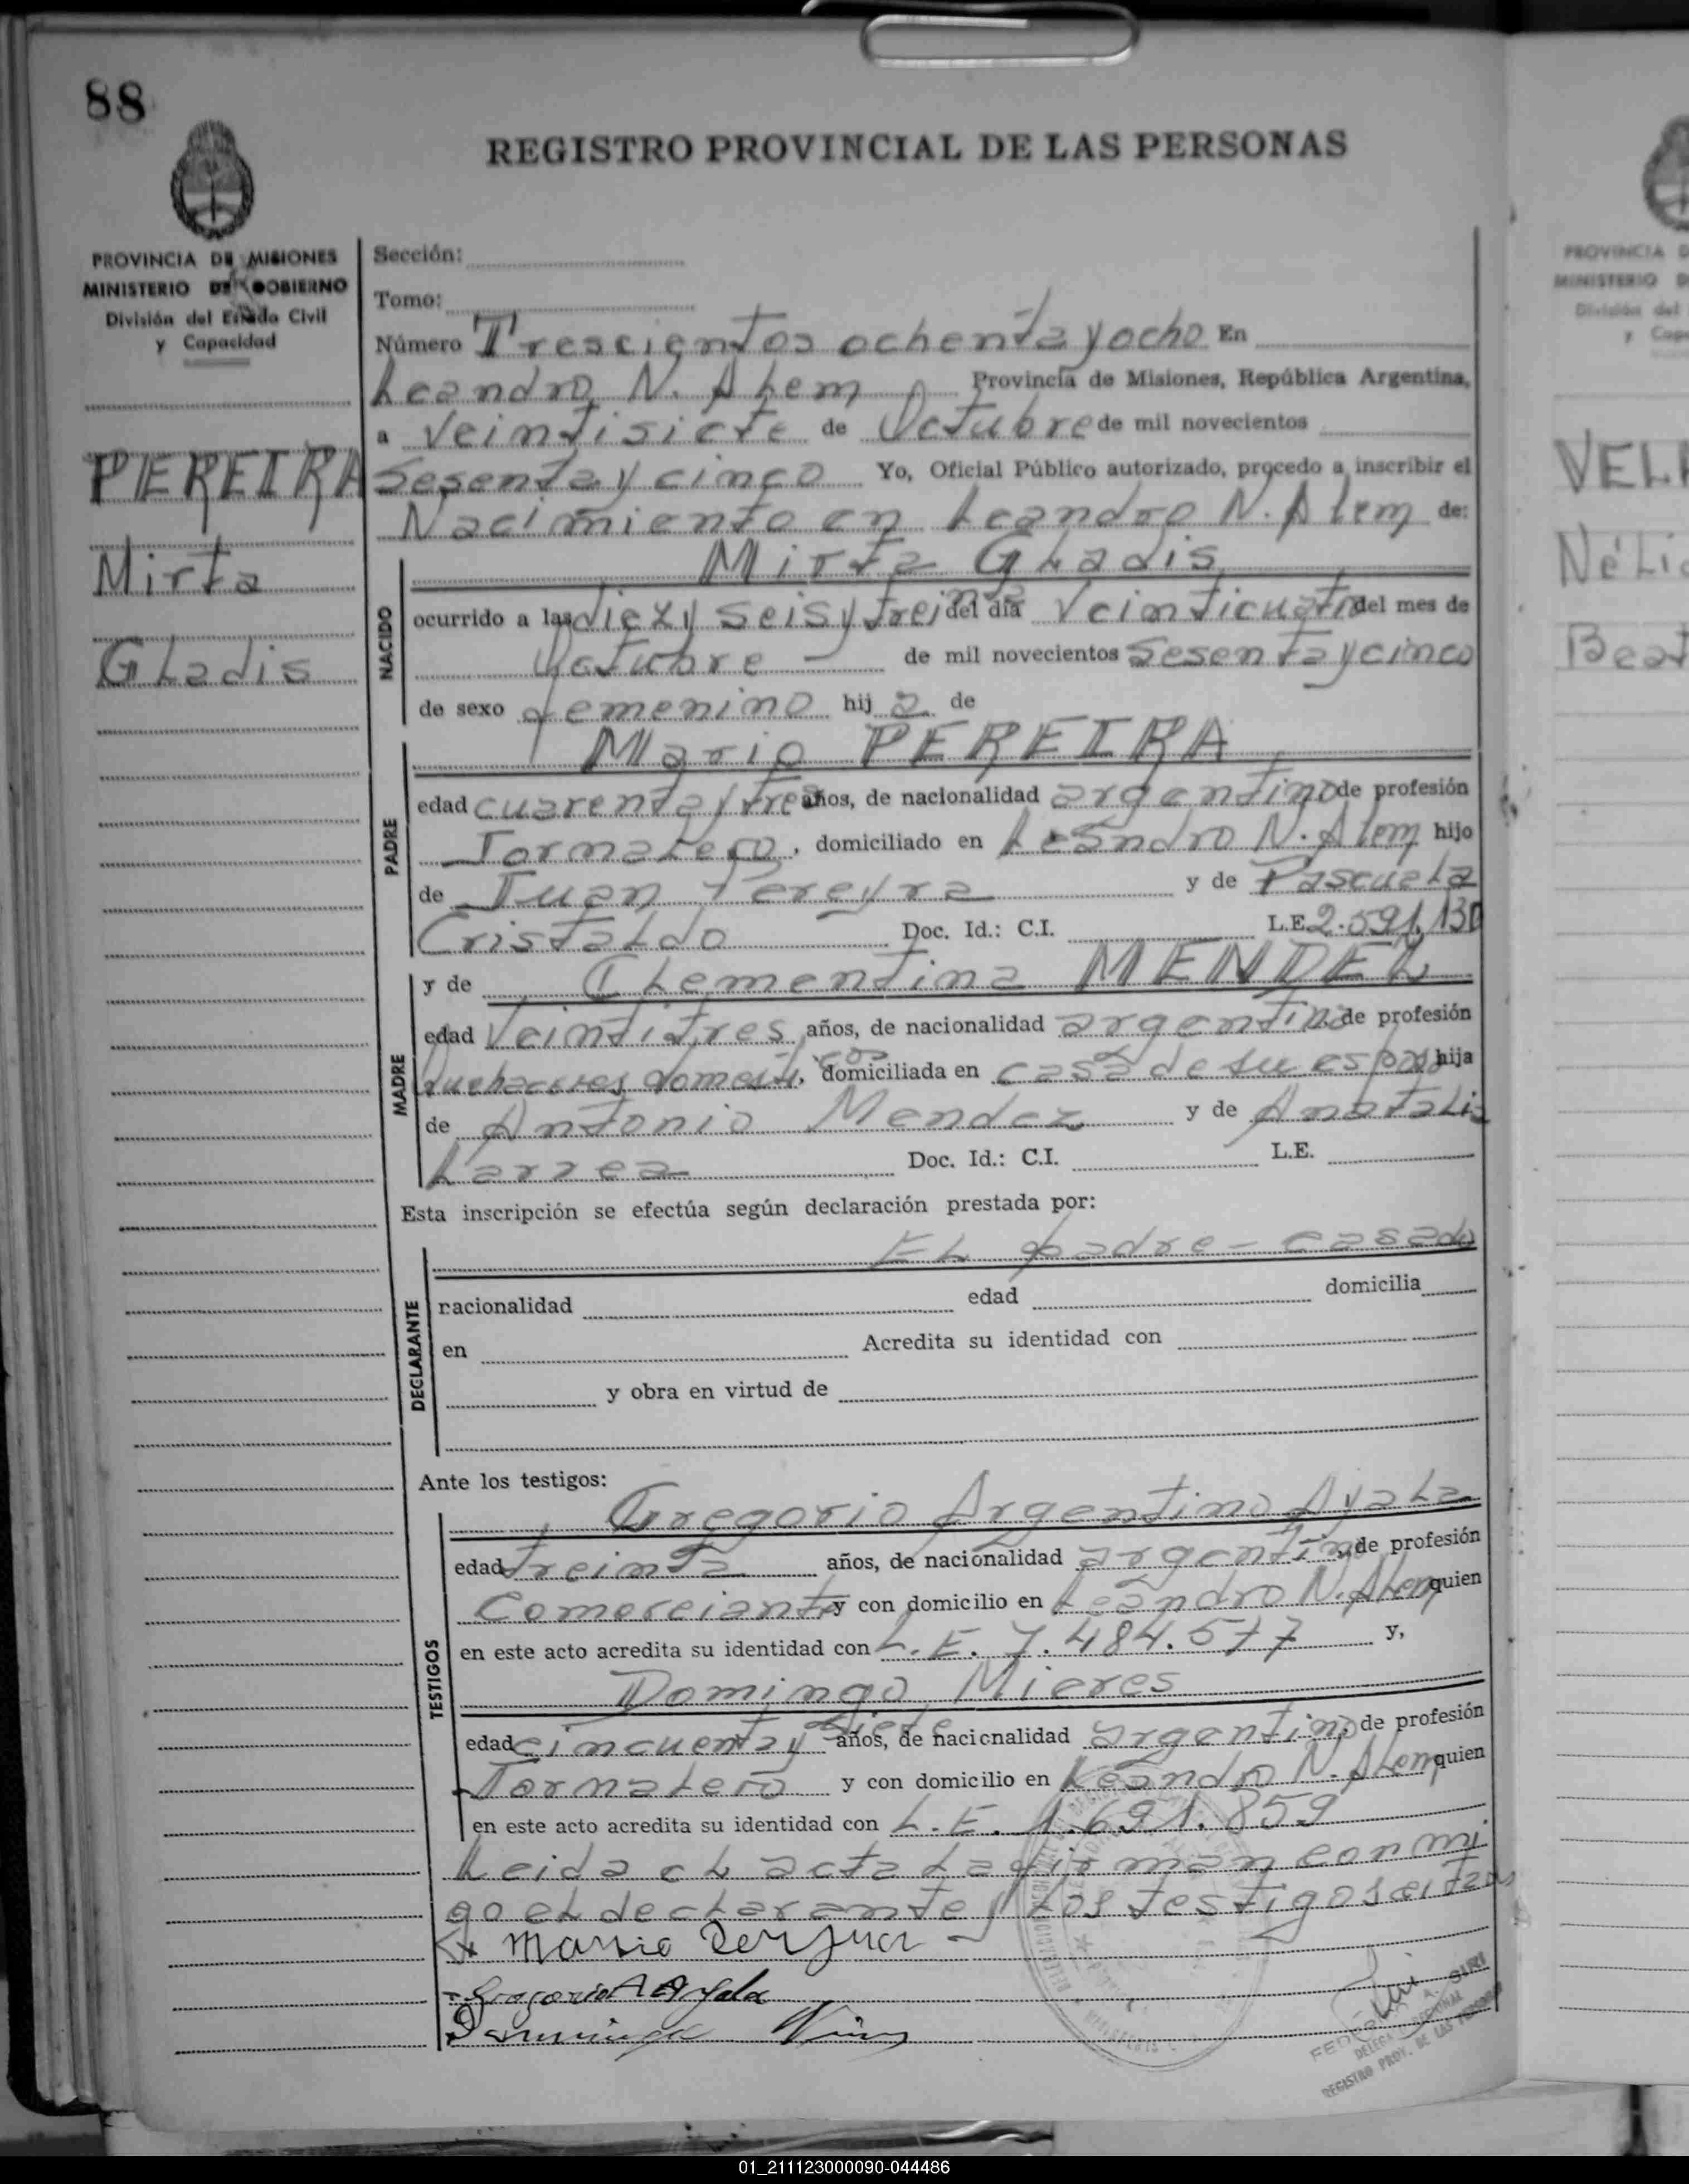 88
REGISTRO PROVINCIAL DE LAS PERSONAS
PROVINCIA DE MISIONES
MINISTERIO DE GOBIERNO
División del Estado Civil
y Capacidad
PEREIRA
Mirta
Gladis
Sección:
Tomo:
Número Trescientos ochenta y ocho En
Leandro N. Alem Provincia de Misiones, República Argentina,
a Veintisiete de Octubre de mil novecientos
Sesenta y cinco Yo, Oficial Público autorizado, procedo a inscribir el
Nacimiento en Leandro N. Alem de:
Mirta Gladis
NACIDO
ocurrido a las diez y seis y treinta del día Veinticuatro del mes de
Octubre - de mil novecientos Sesenta y cinco
de sexo femenino hij a de
Mario PEREIRA
PADRE
edad cuarenta y tres años, de nacionalidad argentino de profesión
Jornalero, domiciliado en Leandro N. Alem hijo
de Juan Pereyra y de Pascuala
Cristaldo Doc. Id.: C.I. L.E. 2.591.130
MADRE
y de Clementina MENDEZ
edad Veintitres años, de nacionalidad argentina de profesión
Quehaceres domesticos, domiciliada en casa de su esposo hija
de Antonio Mendez y de Anatalia
Larrea Doc. Id.: C.I. L.E.
Esta inscripción se efectúa según declaración prestada por:
El padre - casado
DECLARANTE
racionalidad edad domicilia
en Acredita su identidad con
y obra en virtud de
Ante los testigos:
Gregorio Argentino Ayala
TESTIGOS
edad treinta años, de nacionalidad argentino de profesión
Comerciante y con domicilio en Leandro N. Alem quien
en este acto acredita su identidad con L.E. 7.484.577 y,
Domingo Mieres
edad cincuenta y siete años, de nacionalidad argentino de profesión
Jornalero y con domicilio en Leandro N. Alem quien
en este acto acredita su identidad con L.E. 1.691.859
Leida el acta la firman conmi
go el declarante y los testigos citados
Gregorio A Ayala
A. SIRI
REGISTRO PROV. DE LAS PERSONAS
PROVINCIA D
MINISTERIO D
División del
y Capa
VEL
Néli
Beat
01_211123000090-044486